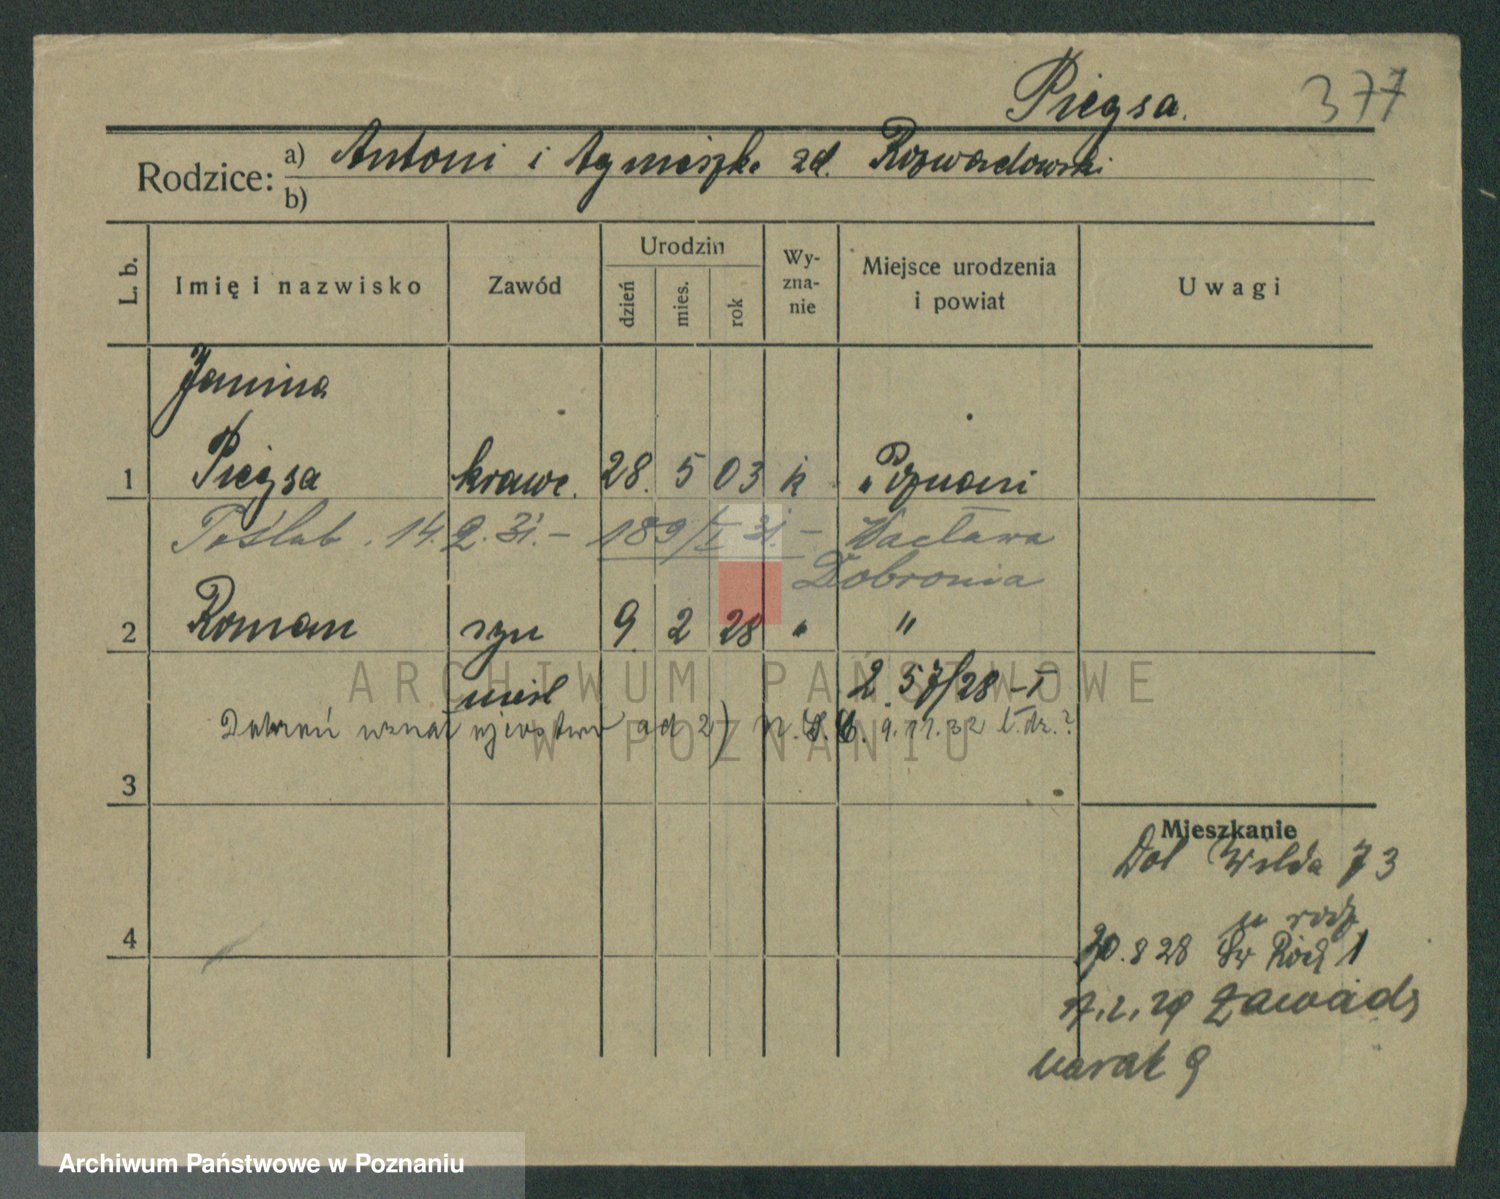 Piegsa. 377
Rodzice: a) Antoni i Agnieszka zd. Rozwadowski
b)
L. b. Imię i nazwisko Zawód Urodzin dzień mies. rok Wyznanie Miejsce urodzenia i powiat Uwagi
Janina
1 Piegsa krawc. 28. 5 03 k Poznani
Poślub. 14. 2. 31. – 189/I 31. – Wacława
Dobronia
2 Roman syn 9. 2 28 " "
nieśl 2. 57/28 – I
uznał ojcostwo ad 2) 9.11.32
3
Mieszkanie
Dol Wilda 73
u rodz
4
20.8 28 Św Roch 1
17.2.29 Zawady
barak 9
ARCHIWUM PAŃSTWOWE
W POZNANIU
Archiwum Państwowe w Poznaniu